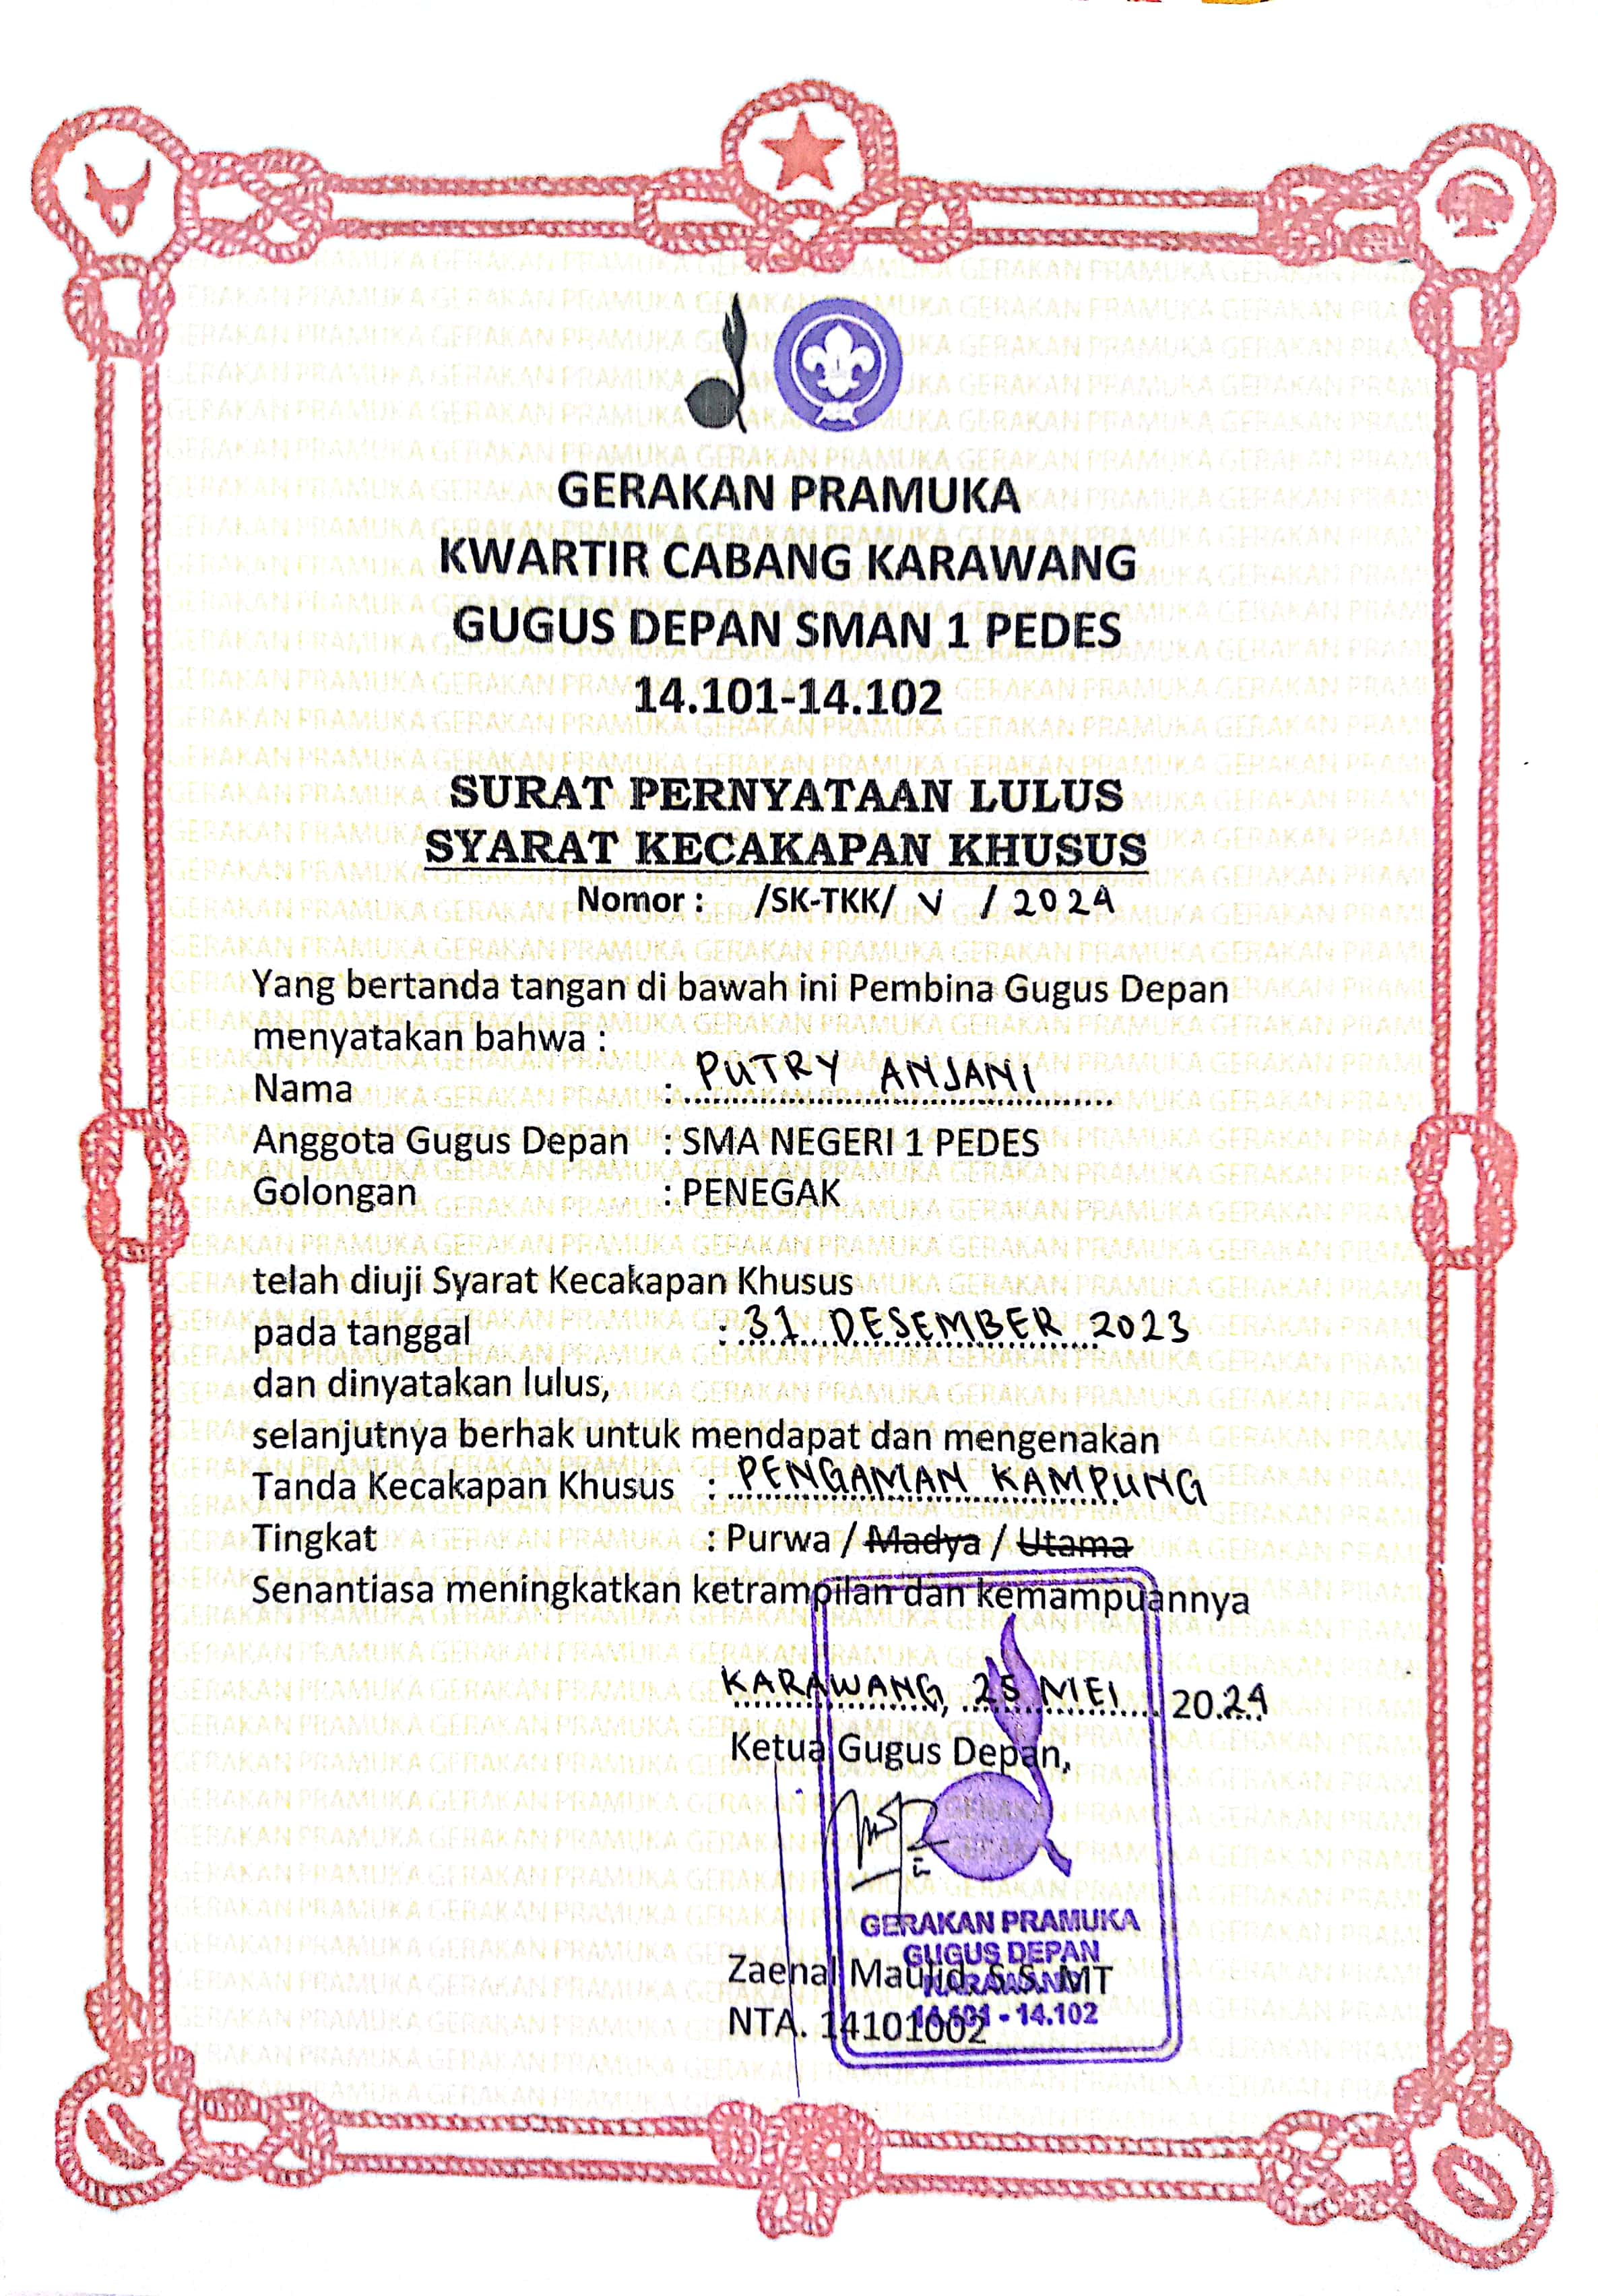 GERAKAN PRAMUKA
KWARTIR CABANG KARAWANG
GUGUS DEPAN SMAN 1 PEDES
14.101-14.102
SURAT PERNYATAAN LULUS
SYARAT KECAKAPAN KHUSUS
Nomor : /SK-TKK/ V / 2024
Yang bertanda tangan di bawah ini Pembina Gugus Depan
menyatakan bahwa :
Nama : PUTRY ANJANI
Anggota Gugus Depan : SMA NEGERI 1 PEDES
Golongan : PENEGAK
telah diuji Syarat Kecakapan Khusus
pada tanggal : 31 DESEMBER 2023
dan dinyatakan lulus,
selanjutnya berhak untuk mendapat dan mengenakan
Tanda Kecakapan Khusus : PENGAMAN KAMPUNG
Tingkat : Purwa / Madya / Utama
Senantiasa meningkatkan ketrampilan dan kemampuannya
KARAWANG, 25 MEI 2024
Ketua Gugus Depan,
GERAKAN PRAMUKA
GUGUS DEPAN
KARAWANG
14.101 - 14.102
Zaenal Maulid, S.S. MT
NTA. 14101002